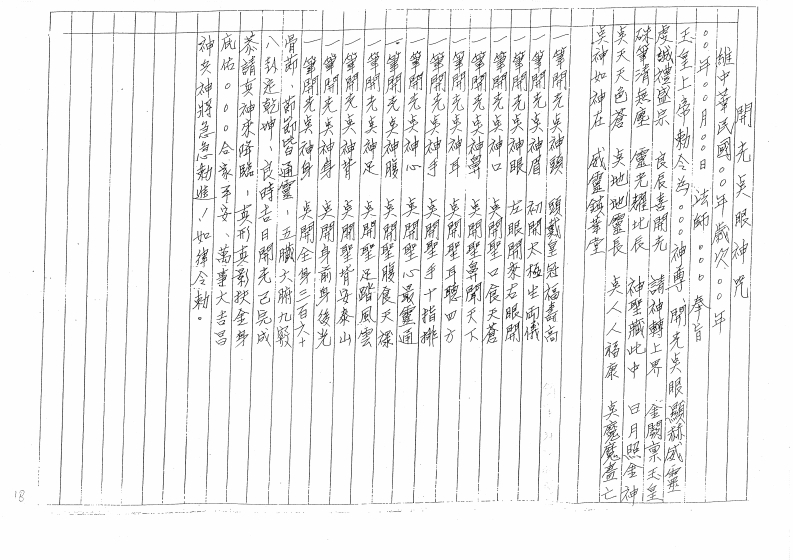 開光吳眼神咒
維中華民國○○年歲次○○年
○○年○○月○○日　法師○○○奉旨
玉皇上帝勅令為○○○神尊、開光吳眼顯赫威靈
虔誠禮盛宗　良辰喜開光　請神轉上界　金闕稟玉皇
硃筆清無塵　靈光耀北辰　神聖職此中　日月照金神
吳天天色蒼　吳地地靈長　吳人人福康　吳魔魔盡亡
吳神如神在　威靈鎮華堂
一筆開光吳神頭　頭戴皇冠福壽高
一筆開光吳神眉　初開太極生兩儀
一筆開光吳神眼　左眼開來右眼開
一筆開光吳神口　吳開聖口食天蒼
一筆開光吳神鼻　吳開聖鼻聞天下
一筆開光吳神耳　吳開聖耳聽四方
一筆開光吳神手　吳開聖手十指排
一筆開光吳神心　吳開聖心最靈通
一筆開光吳神腹　吳開聖腹食天祿
一筆開光吳神足　吳開聖足踏風雲
一筆開光吳神背　吳開聖背安泰山
一筆開光吳神身　吳開身前身後光
一筆開光吳神身　吳開全身三百六十
骨節、節節皆通靈、五臟六腑九竅
八卦定乾坤、良時吉日開光己完成
恭請真神來降臨、真形真影扶金身
庇佑○○○合家平安、萬事大吉昌
神兵神將急急勅進！如律令勅。
18